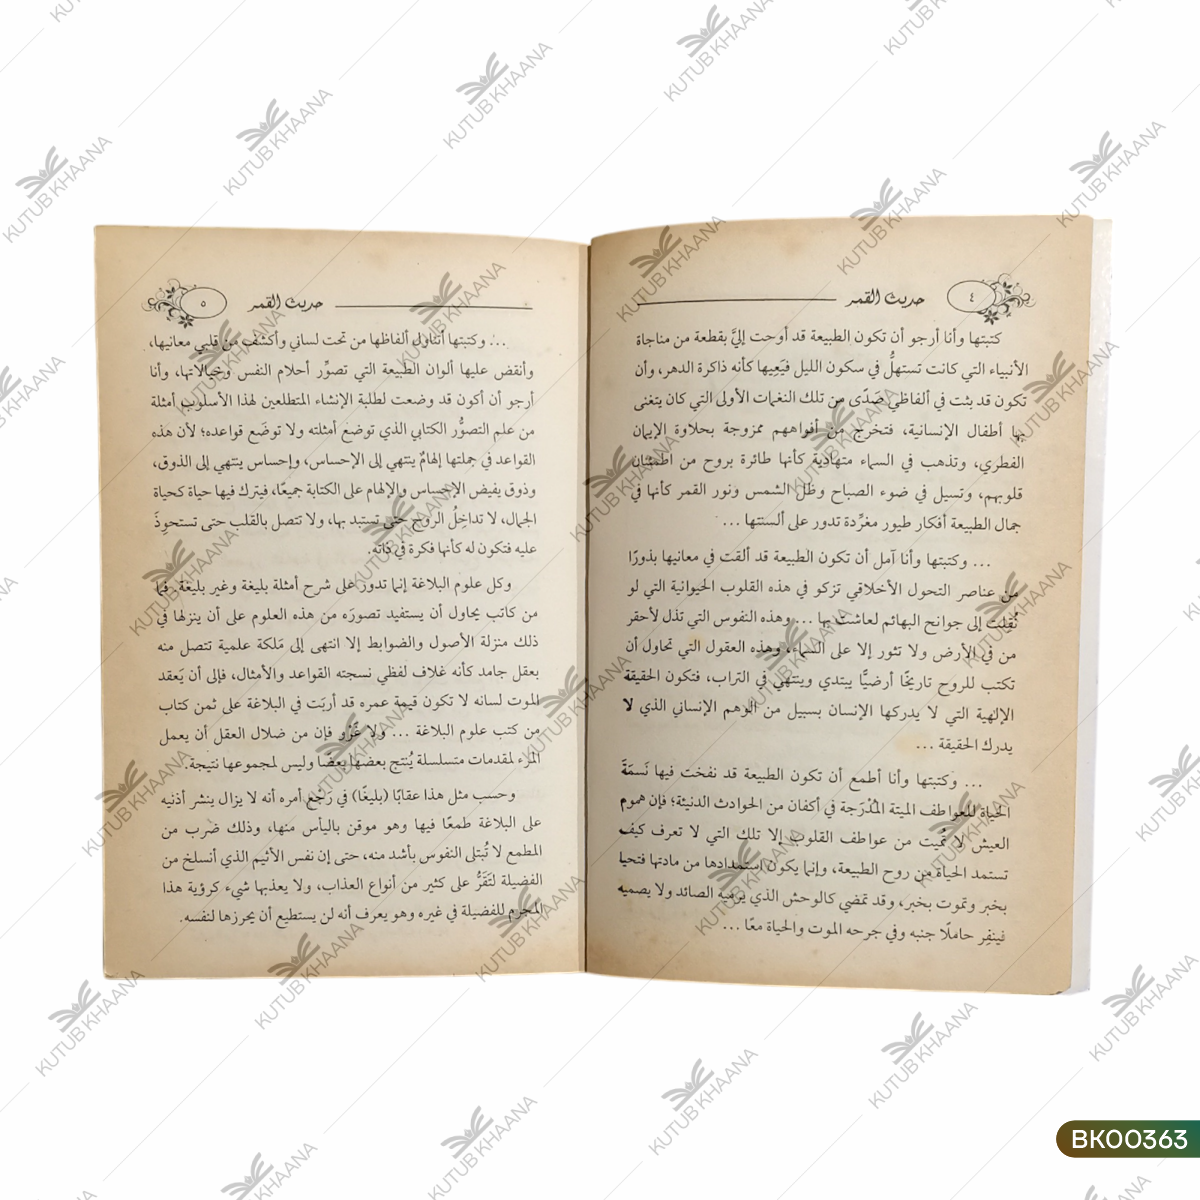 ٤
حديث القمر
كتبتها وأنا أرجو أن تكون الطبيعة قد أوحت إليَّ بقطعة من مناجاة
الأنبياء التي كانت تستهلُّ في سكون الليل فيَعِيها كأنه ذاكرة الدهر، وأن
تكون قد بثت في ألفاظي صَدًى من تلك النغمات الأولى التي كان يتغنى
بها أطفال الإنسانية، فتخرج من أفواههم ممزوجة بحلاوة الإيمان
الفطري، وتذهب في السماء متهادية كأنها طائرة بروح من اطمئنان
قلوبهم، وتسيل في ضوء الصباح وظل الشمس ونور القمر كأنها في
جمال الطبيعة أفكار طيور مغرِّدة تدور على ألسنتها ...
... وكتبتها وأنا آمل أن تكون الطبيعة قد ألقت في معانيها بذورًا
من عناصر التحول الأخلاقي تزكو في هذه القلوب الحيوانية التي لو
نُقِلت إلى جوانح البهائم لعاشت بها ... وهذه النفوس التي تذل لأحقر
من في الأرض ولا تثور إلا على السماء، وهذه العقول التي تحاول أن
تكتب للروح تاريخًا أرضيًّا يبتدي وينتهي في التراب، فتكون الحقيقة
الإلهية التي لا يدركها الإنسان بسبيل من الوهم الإنساني الذي لا
يدرك الحقيقة ...
... وكتبتها وأنا أطمع أن تكون الطبيعة قد نفخت فيها نَسمَةَ
الحياة للعواطف الميتة المُدْرَجة في أكفان من الحوادث الدنيئة؛ فإن هموم
العيش لا تُميت من عواطف القلوب إلا تلك التي لا تعرف كيف
تستمد الحياة من روح الطبيعة، وإنما يكون استمدادها من مادتها فتحيا
بخبر وتموت بخبر، وقد تمضي كالوحش الذي يرميه الصائد ولا يصميه
فينفِر حاملًا جنبه وفي جرحه الموت والحياة معًا ...
حديث القمر
٥
... وكتبتها أتناول ألفاظها من تحت لساني وأكشف من قلبي معانيها،
وأنقض عليها ألوان الطبيعة التي تصوِّر أحلام النفس وخيالاتها، وأنا
أرجو أن أكون قد وضعت لطلبة الإنشاء المتطلعين لهذا الأسلوب أمثلة
من علم التصوُّر الكتابي الذي توضع أمثلته ولا توضَع قواعده؛ لأن هذه
القواعد في جملتها إلهامٌ ينتهي إلى الإحساس، وإحساس ينتهي إلى الذوق،
وذوق يفيض الإحساس والإلهام على الكتابة جميعًا، فيترك فيها حياة كحياة
الجمال، لا تداخِلُ الروح حتى تستبد بها، ولا تتصل بالقلب حتى تستحوِذَ
عليه فتكون له كأنها فكرة في ذاته.
وكل علوم البلاغة إنما تدور على شرح أمثلة بليغة وغير بليغة، فما
من كاتب يحاول أن يستفيد تصورَه من هذه العلوم على أن ينزلها في
ذلك منزلة الأصول والضوابط إلا انتهى إلى مَلكة علمية تتصل منه
بعقل جامد كأنه غلاف لفظي نسجته القواعد والأمثال، فإلى أن يَعقد
الموت لسانه لا تكون قيمة عمره قد أربَت في البلاغة على ثمن كتاب
من كتب علوم البلاغة ... ولا غَرْو فإن من ضلال العقل أن يعمل
المرء لمقدمات متسلسلة يُنتج بعضها بعضًا وليس لمجموعها نتيجة.
وحسب مثل هذا عقابًا (بليغًا) في رَجْع أمره أنه لا يزال ينشر أذنيه
على البلاغة طمعًا فيها وهو موقن باليأس منها، وذلك ضرب من
المطمع لا تُبتلى النفوس بأشد منه، حتى إن نفس الأثيم الذي أنسلخ من
الفضيلة لتَقَرُّ على كثير من أنواع العذاب، ولا يعذبها شيء كرؤية هذا
المجرم للفضيلة في غيره وهو يعرف أنه لن يستطيع أن يحرزها لنفسه.
KUTUB KHAANA
BK00363